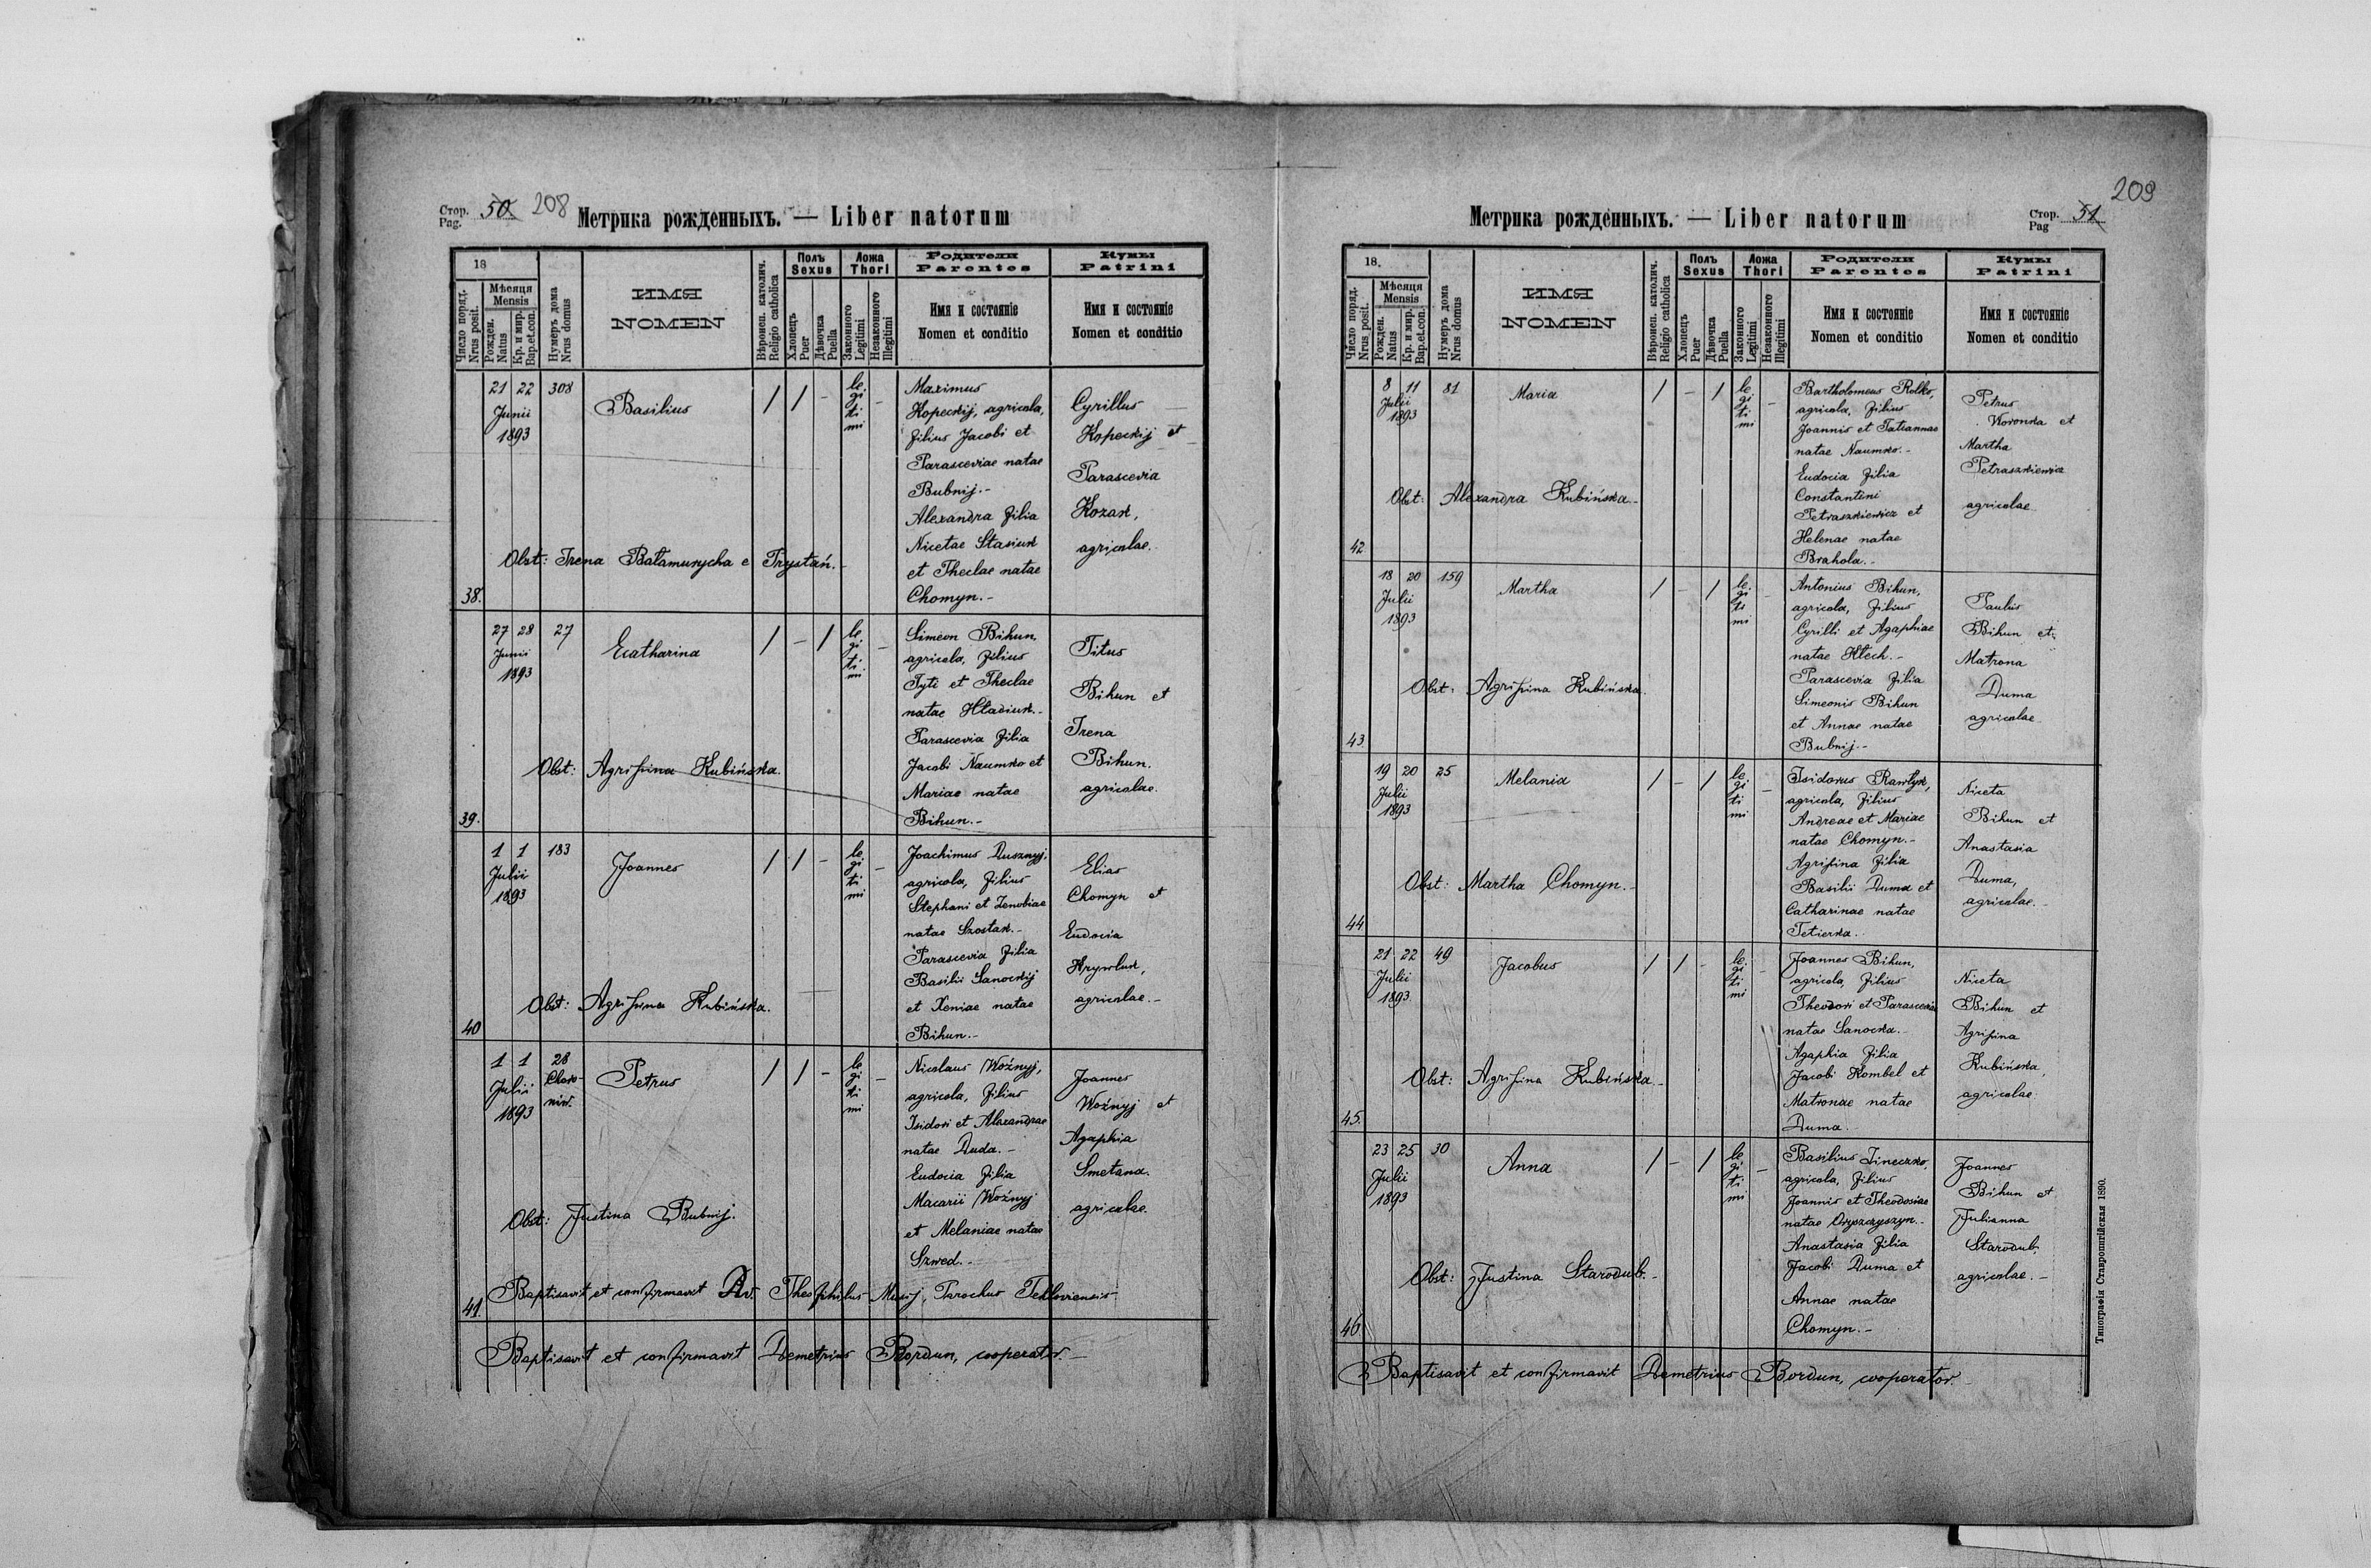 Стор. 50 208
Pag.
Метрика рожденныхъ. — Liber natorum
18
Число поряд.
Nrus posit.
Мѣсяця
Mensis
Рожден.
Natus
Кр. и мир.
Bap.et.con.
Нумеръ дома
Nrus domus
ИМЯ
NOMEN
Вѣроиеп. католич.
Religio catholica
Полъ
Sexus
Хлопецъ
Puer
Дѣвочка
Puella
Ложа
Thori
Законного
Legitimi
Незаконного
Illegitimi
Родители
Parentes
Имя и состояніе
Nomen et conditio
Кумы
Patrini
Имя и состояніе
Nomen et conditio
38.
21 22
Junii
1893
308
Basilius
/ / - -
le.
gi
ti
mi
Maximus
Kopeckij, agricola,
filius Jacobi et
Parasceviae natae
Bubnij.-
Alexandra filia
Nicetae Stasiuk
et Theclae natae
Chomyn.-
Cyrillus
Kopeckij et
Parascevia
Kozak,
agricolae.
Obst: Irena Bałamurycha e Trystań.
39.
27 28
Junii
1893
27
Ecatharina
/ - / -
le.
gi
ti
mi
Simeon Bihun,
agricola, filius
Tyti et Theclae
natae Hładiuk.-
Parascevia filia
Jacobi Naumko et
Mariae natae
Bihun.-
Titus
Bihun et
Irena
Bihun.
agricolae.
Obst: Agrifina Kubińska.
40
1 1
Julii
1893
183
Joannes
/ / - -
le.
gi
ti
mi
Joachimus Dusznyj,
agricola, filius
Stephani et Zenobiae
natae Szostak.-
Parascevia filia
Basilii Sanockij
et Xeniae natae
Bihun.-
Elias
Chomyn et
Eudocia
Hrywluk,
agricolae.-
Obst: Agrifina Kubińska.
41.
1 1
Julii
1893
28
Choro-
niw.
Petrus
/ / - -
le
gi
ti
mi
Nicolaus Woźnyj,
agricola, filius
Isidori et Alexandrae
natae Duda.-
Eudocia filia
Macarii Woźnyj
et Melaniae natae
Szwed.-
Joannes
Woźnyj et
Agaphia
Smetana.
agricolae.
Obst: Justina Bubnij.
Baptisavit et confirmavit Theophilus Parochus
Baptisavit et confirmavit Demetrius Bordun, cooperator.-
209
Метрика рожденныхъ. — Liber natorum
Стор. 51
Pag
18.
Число поряд.
Nrus posit.
Мѣсяця
Mensis
Рожден.
Natus
Кр. и мир.
Bap.et.con.
Нумеръ дома
Nrus domus
ИМЯ
NOMEN
Вѣроиеп. католич.
Religio catholica
Полъ
Sexus
Хлопецъ
Puer
Дѣвочка
Puella
Ложа
Thori
Законного
Legitimi
Незаконного
Illegitimi
Родители
Parentes
Имя и состояніе
Nomen et conditio
Кумы
Patrini
Имя и состояніе
Nomen et conditio
42
8 11
Julii
1893
81
Maria
/ - / -
le
gi
ti
mi
Bartholomeus Rolko,
agricola, filius
Joannis et Tatiannae
natae Naumko.-
Eudocia filia
Constantini
Petraszkiewicz et
Helenae natae
Brahola.-
Petrus
Woronka et
Martha
Petraszkiewicz
agricolae
Obst: Alexandra Kubińska.-
43
18 20
Julii
1893
159
Martha
/ - / -
le.
gi
ti
mi
Antonius Bihun,
agricola, filius
Cyrilli et Agaphiae
natae Klech.-
Parascevia filia
Simeonis Bihun
et Annae natae
Bubnij.-
Paulus
Bihun et
Matrona
Duma
agricolae
Obst: Agrifina Kubińska.
44
19 20
Julii
1893
25
Melania
/ - / -
le
gi
ti
mi
Isidorus Rawłyk,
agricola, filius
Andreae et Mariae
natae Chomyn.-
Agrifina filia
Basilii Duma et
Catharinae natae
Tetierka.
Niceta
Bihun et
Anastasia
Duma,
agricolae.-
Obst: Martha Chomyn.-
45.
21 22
Julii
1893
49
Jacobus
/ / - -
le.
gi
ti
mi
Joannes Bihun,
agricola, filius
Theodori et Parasceviae
natae Sanocka.-
Agaphia filia
Jacobi Kombel et
Matronae natae
Duma.
Niceta
Bihun et
Agrifina
Kubińska,
agricolae
Obst: Agrifina Kubińska.-
46.
23 25
Julii
1893
30
Anna
/ - / -
le
gi
ti
mi
Basilius Jineczko,
agricola, filius
Joannis et Theodosiae
natae Oryszczyszyn.-
Anastasia filia
Jacobi Duma et
Annae natae
Chomyn.-
Joannes
Bihun et
Julianna
Starodub,
agricolae.-
Obst: Justina Starodub.-
Baptisavit et confirmavit Demetrius Bordun, cooperator.-
Типографія Ставропигійская 1890.